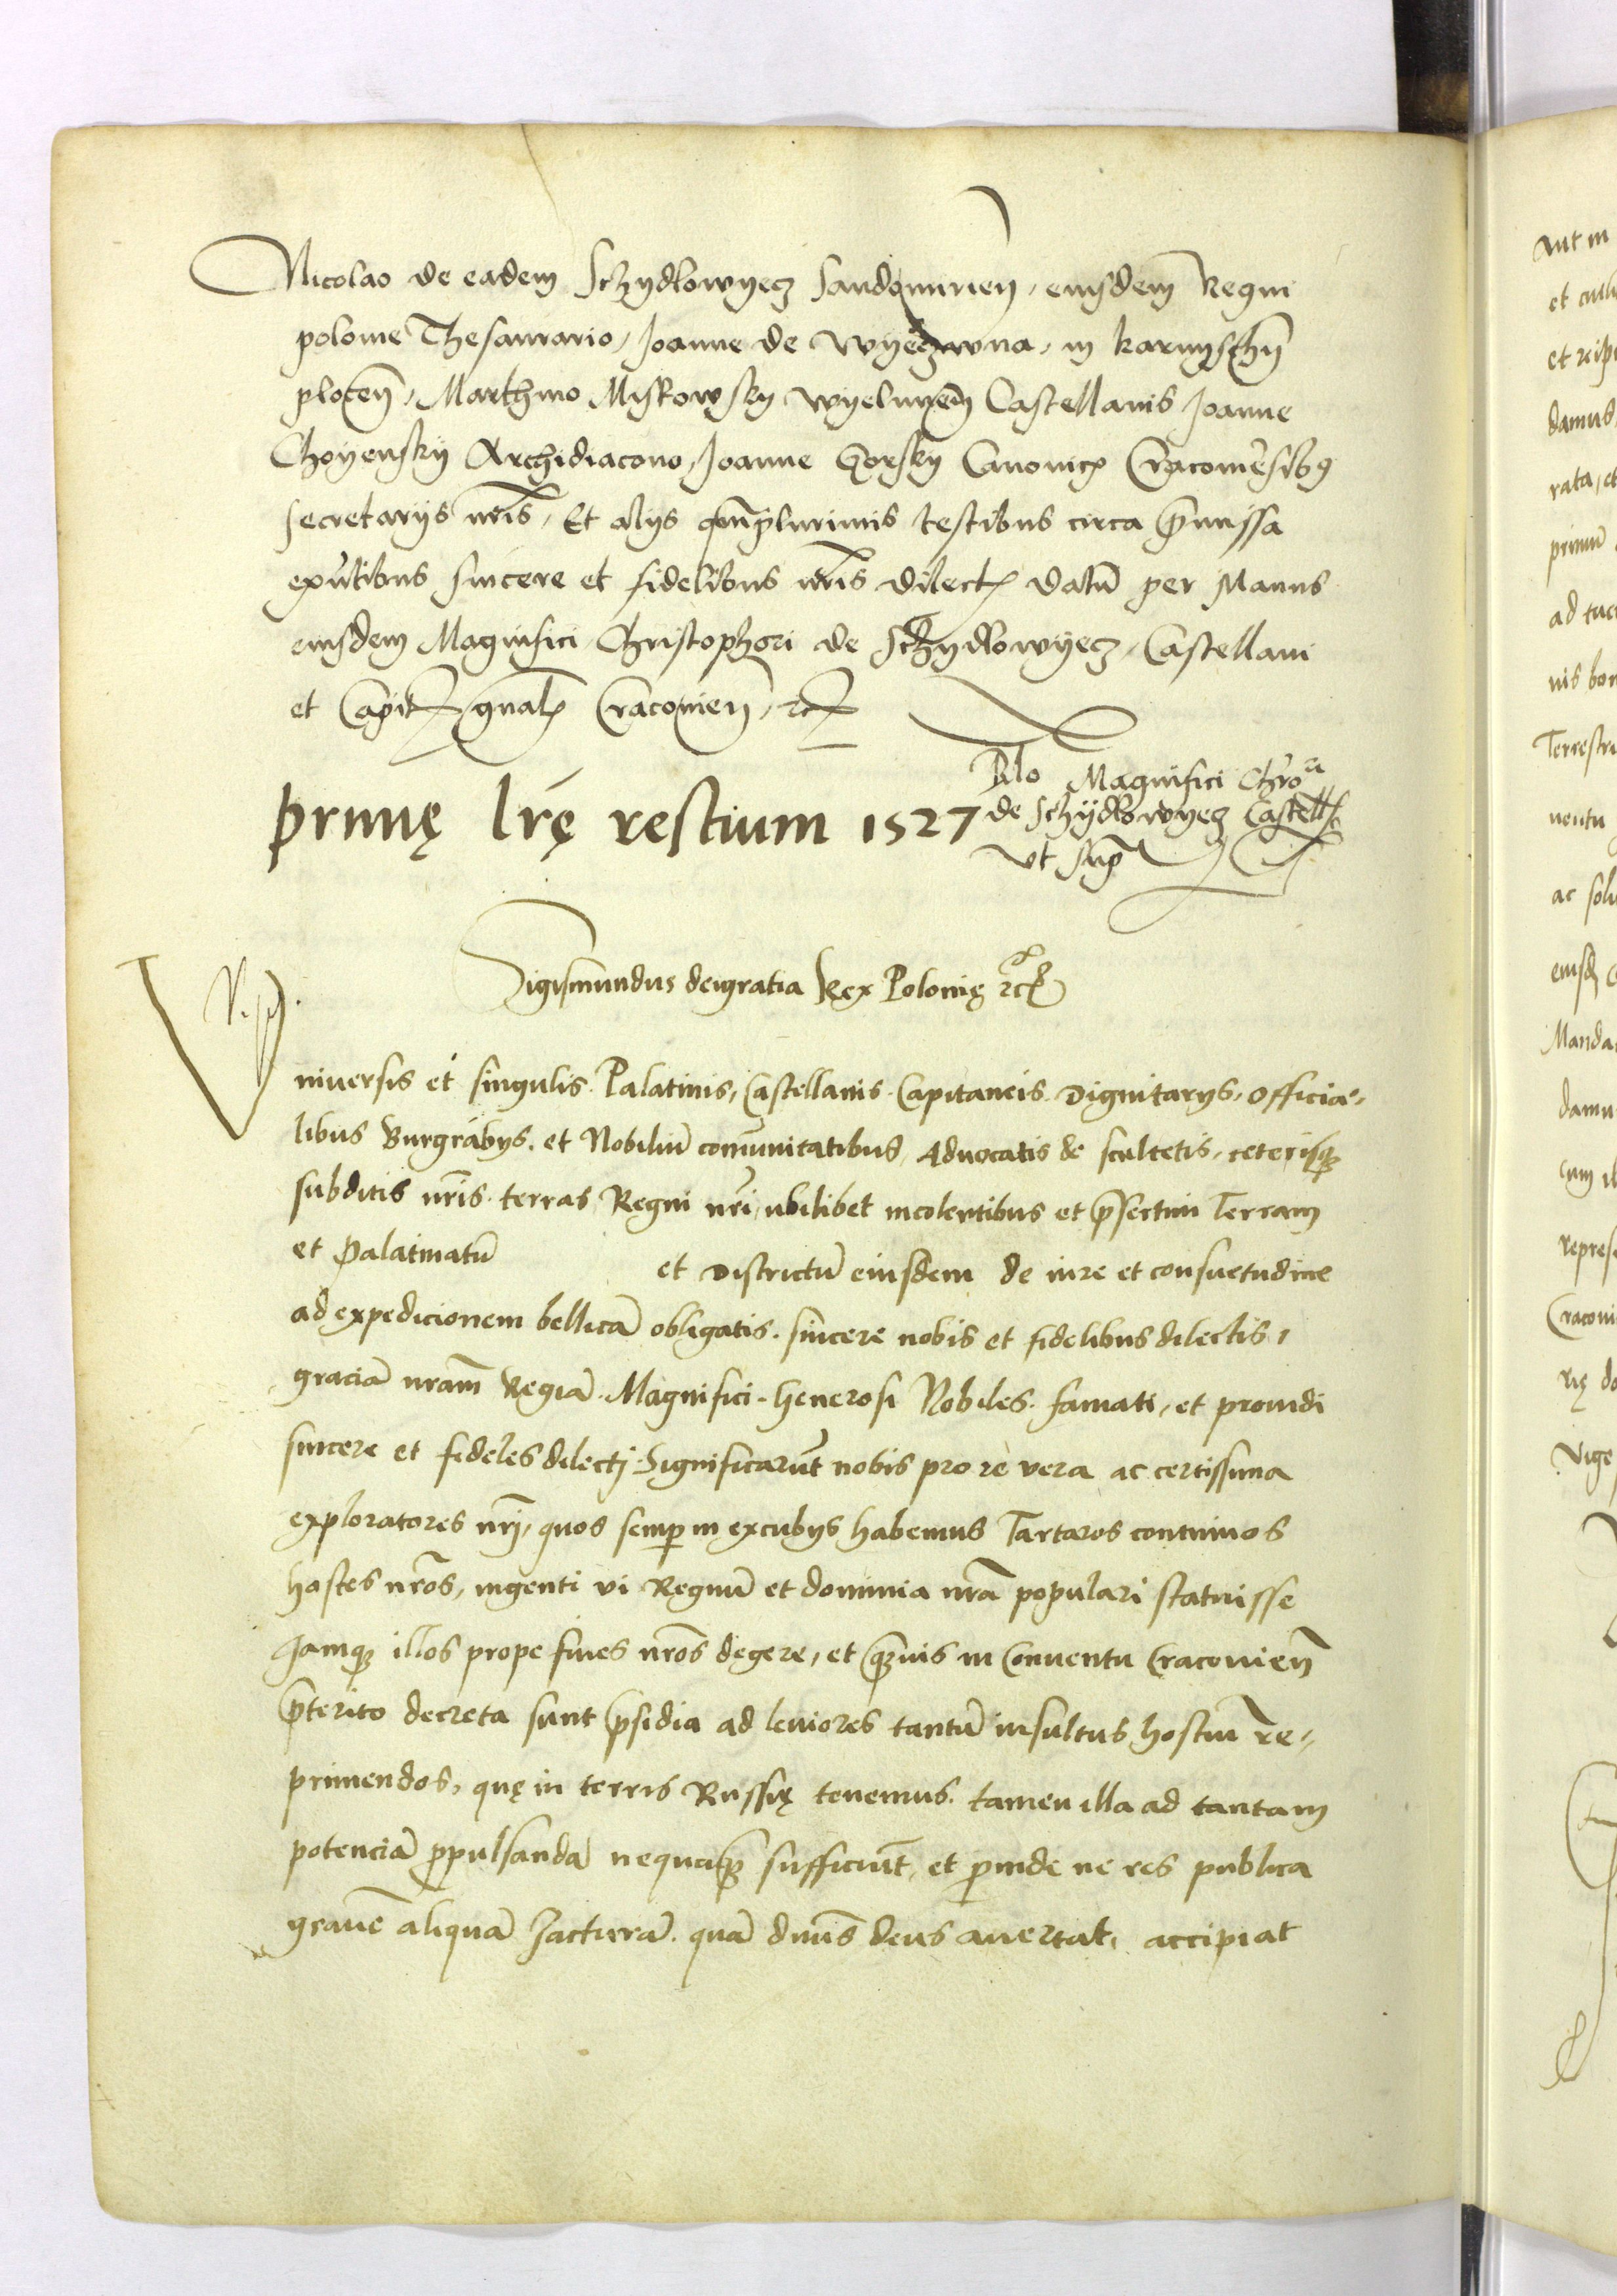 Nicolao de eadem Schydlowyecz Sandomirien, eiusdem Regni
polonie Thesaurario, Joanne de wyeczwna, in
plocen̄, Marthino Miskowsky wyelunen̄ Castellanis Joanne
Choyensky Archidiacono, Joanne Gorsky Canonicꝭ Cracoviēsibꝫ
secretarijs nrīs, Et alijs qm̄plurimis testibus circa p̄missa
exn̄tibus sincere et fidelibus nrīs dilectꝭ datū per Manus
eiusdem Magnifici Christophori de Schydlowyecz, Castellani
et Capitꝭ gn̄alꝭ Cracovien̄, ꝛcꝭ
Rlo Magnifici Chrō
de Schydlowyecz Castell
vt sup̄
prime̜ lrē̜ restium 1527
Sigismundus deigratia Rex Polonie̜ ꝛcꝭ
Vniversis et singulis Palatinis, Castellanis Capitaneis Dignitarijs, officia-
libus Burgrabijs. et Nobiliū com̄unitatibus, Advocatis de scultetis, ceterisqꝫ
subditis nrīs. terras Regni nrī ubilibet incolentibus et p̄sertim Terram
et Palatinatū et Districtū eiusdem de iure et consuetudine
ad expedicionem bellicā obligatis. sincere nobis et fidelibus dilectis,
graciā nrām Regiā. Magnifici. Generosi Nobiles. famati, et providi
sincere et fideles dilectj. Significarūt nobis pro re vera ac certissima
exploratores nrj, quos semꝑ in excubijs habemus Tartaros continuos
hostes nrōs, ingenti vi Regnū et dominia nrā populari statuisse
Jamqꝫ illos prope fines nrōs degere, et qꝫvis in Conventu Cracovien̄
p̄terito decreta sunt p̄sidia ad leviores tantū insultus hostiū re-
primendos, que̜ in terris Russie̜ tenemus. tamen illa ad tantam
potenciā ꝓpulsandā nequaqꝫ sufficiūt, et ꝓinde ne res publica
gravē aliquā Jacturā. quā dnūs deus avertat, accipiat